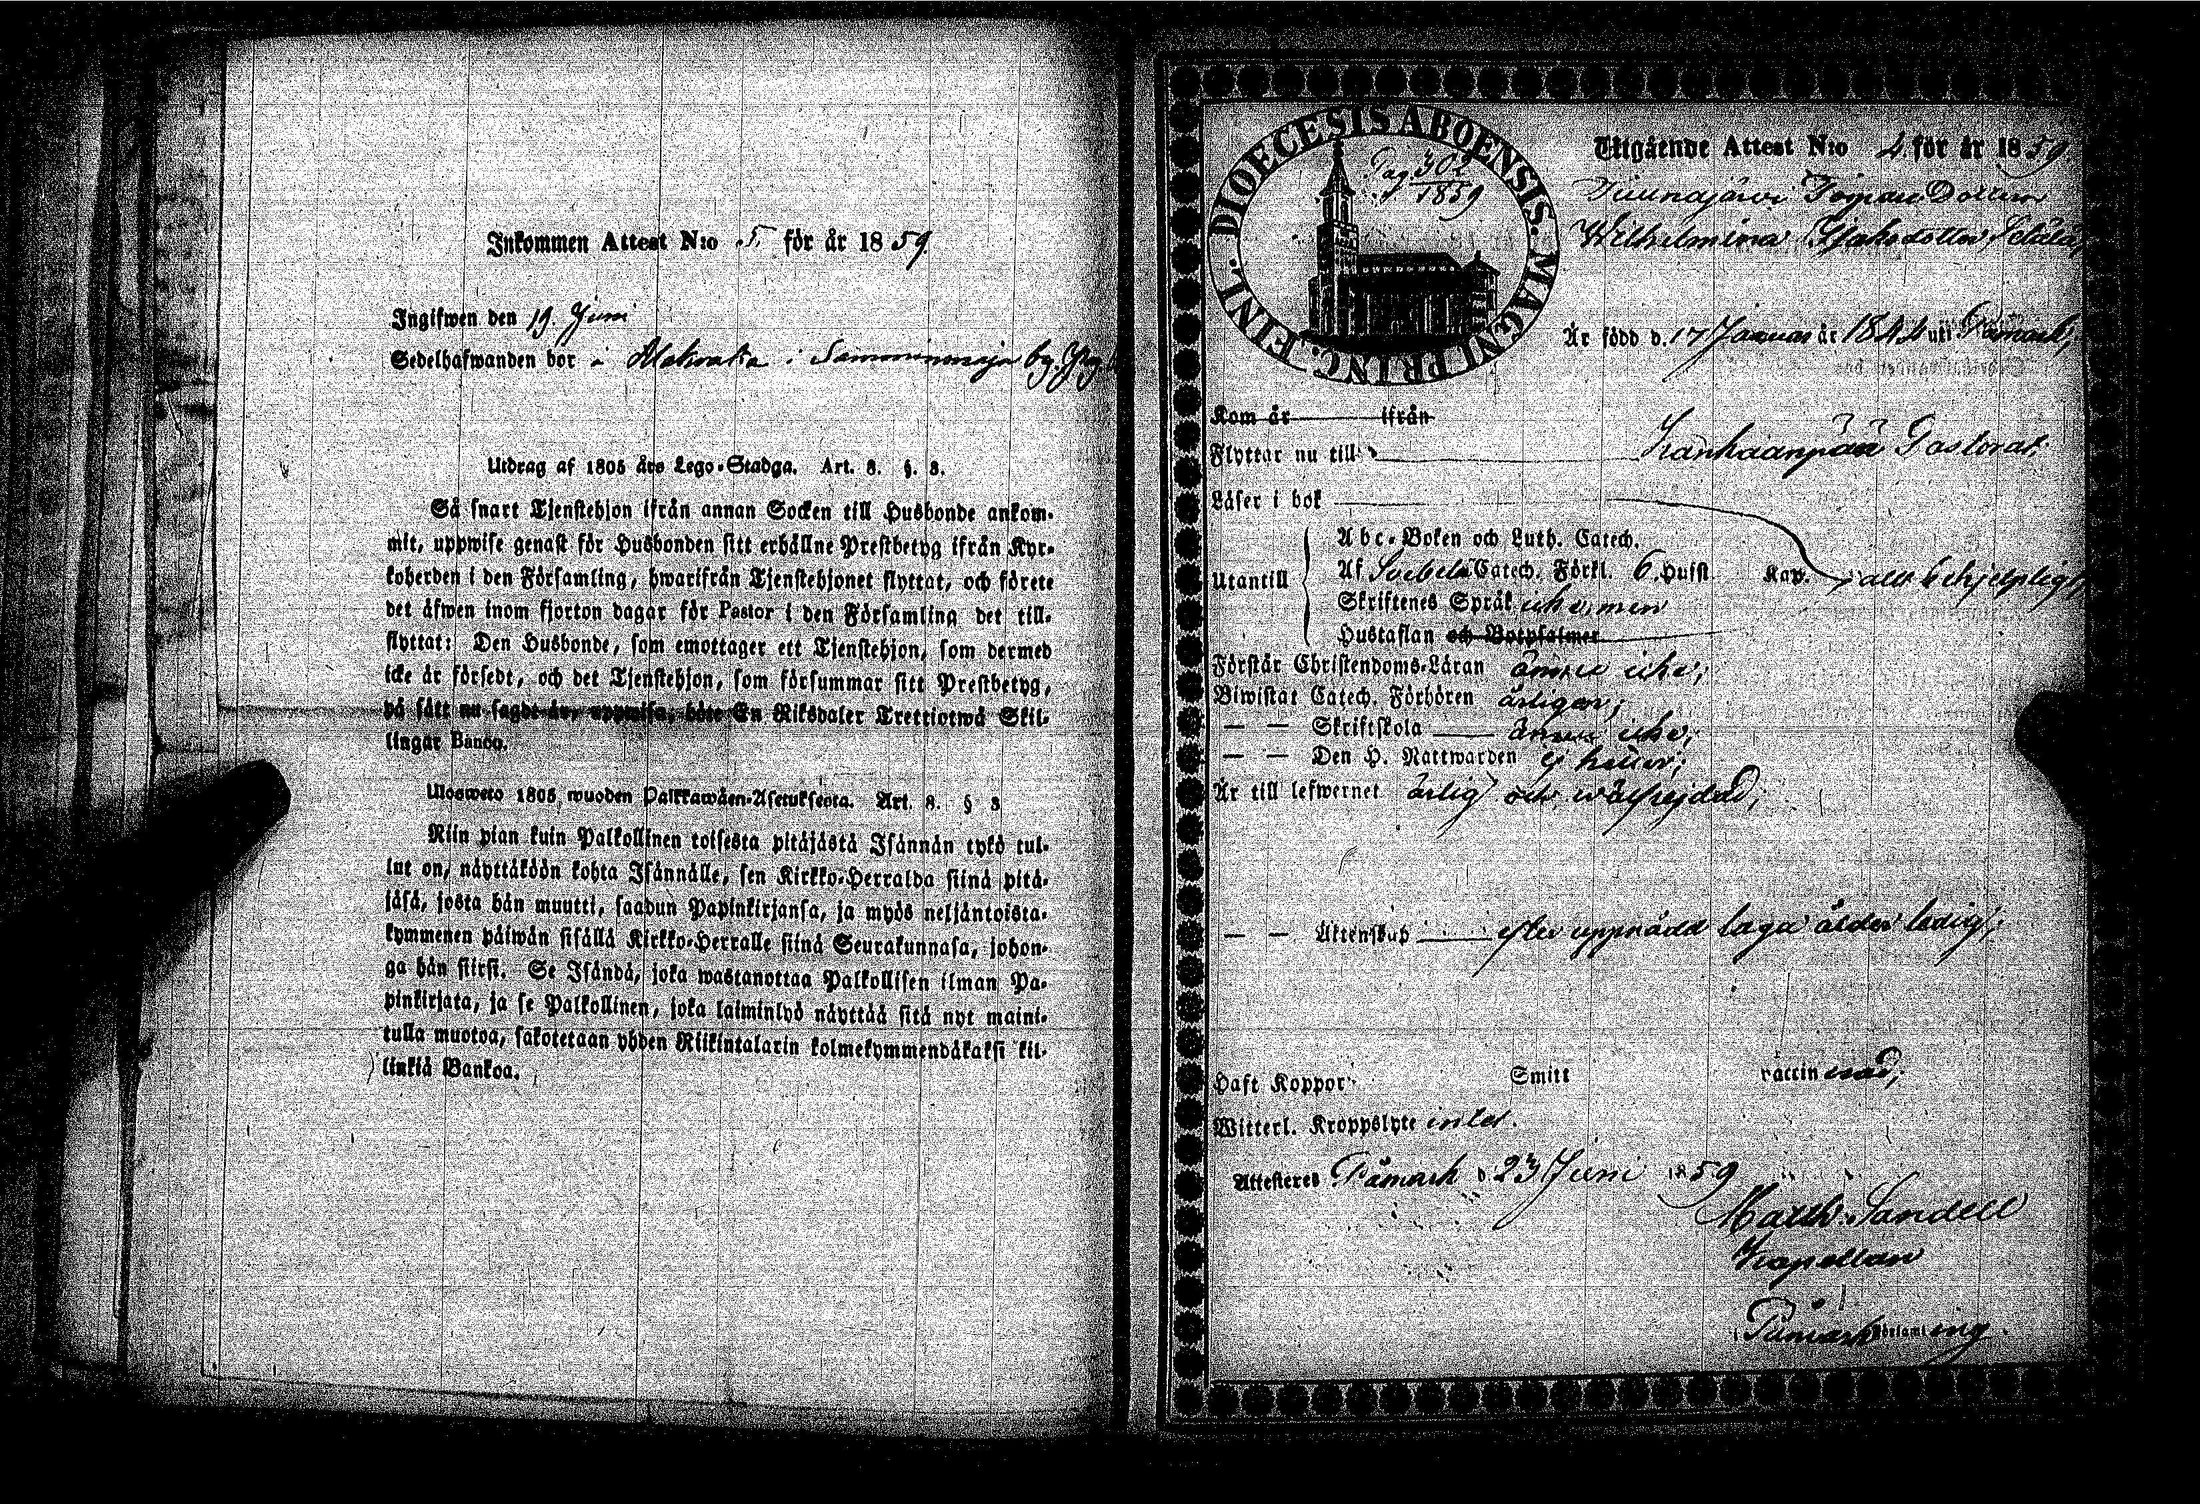 Inkommen Attest N:o 5. för år 1859.
Ingifwen den 19. Juni
Sedelhafwanden bor i i Samminmaja by.
Utdrag af 1805 års Lego-Stadga. Art. 8. §. 3.
Så snart Tjenstehjon ifrån annan Socken till Husbonde ankom-
mit, uppwise genast för Husbonden sitt erhållne Prestbetyg ifrån Kyr-
koherden i den Församling, hwarifrån Tjenstehjonet flyttat, och förete
det äfwen inom fjorton dagar för Pastor i den Församling det till-
flyttat: Den Husbonde, som emottager ett Tjenstehjon, som dermed
icke är försedt, och det Tjenstehjon, som försummar sitt Prestbetyg,
på sått nu sagdt är, uppwisa, böte En Riksdaler Trettiotwå Skil-
lingar Banco.
Ulosweto 1805 wuoden Palkkawäen-Asetuksesta. Art. 8. § 3
Niin pian kuin Palkollinen toisesta pitäjästä Isännän tykö tul-
lut on, näyttäköön kohta Isännälle, sen Kirkko-Herralda siinä pitä-
jäsä, josta hän muutti, saadun Papinkirjansa, ja myös neljäntoista-
kymmenen päiwän sisällä Kirkko-Herralle siinä Seurakunnasa, johon-
ga hän siirsi. Se Isändä, joka wastanottaa Palkollisen ilman Pa-
pinkirjata, ja se Palkollinen, joka laiminlyö näyttää sitä nyt maini-
tulla muotoa, sakotetaan yhden Riikintalarin kolmekymmendäkaksi kil-
linkiä Bankoa.
DIOECESIS ABOENSIS. MAGNI PRINC. FINL.
Pag 302
1859
Utgående Attest N:o 4. för år 1859.
Dottern
Wilhelmina
Är född d. 17 Januar år 1844 uti Påmark;
Kom år ifrån
Flyttar nu till Kankaanpää Pastorat;
Läser i bok
Abc-Boken och Luth. Catech.
Utantill Af Svebel. Catech. Förkl. 6. Hufst. Kap. allt behjelpligt;
Skriftenes Språk icke, men
Hustaflan och Botpsalmer
Förstår Christendoms-Läran ännu icke;
Biwistat Catech. Förhören årligen;
— — Skriftskola ännu icke;
— — Den H. Nattwarden ej heller;
Är till lefwernet ärlig och wälfrejdad;
— — Äktenskap efter uppnådd laga ålder ledig;
Haft Koppor Smitt vaccinerad;
Witterl. Kroppslyte intet.
Attesteras Påmark d. 23 Juni 1859
Matth. Sandell
Kapellan
i Påmark Församling.